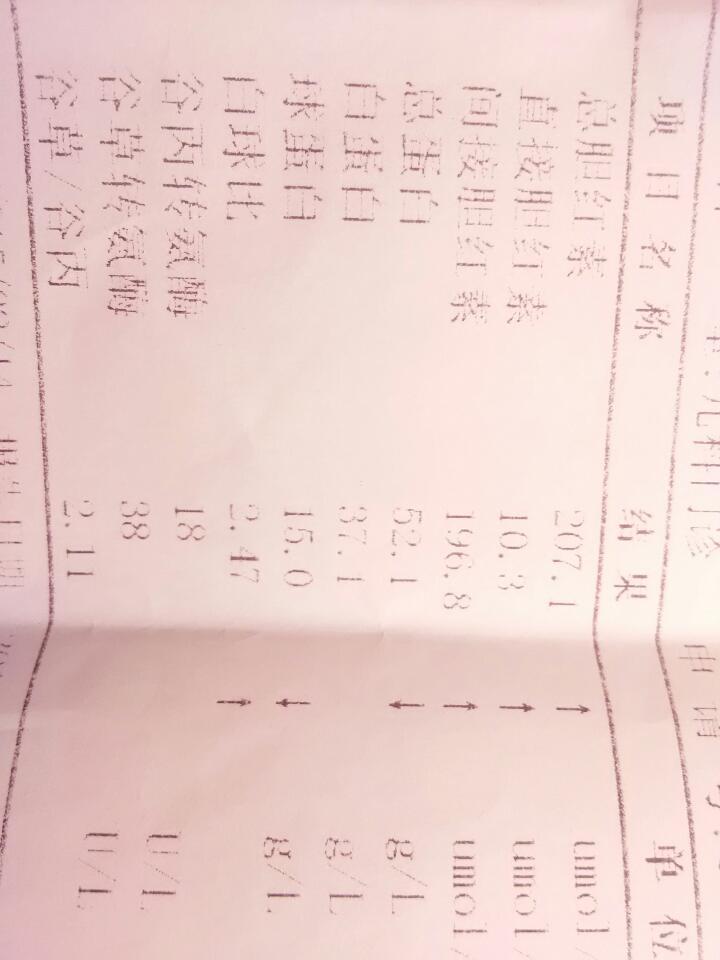 儿科门诊 申请
项目名称 结果 单位
总胆红素 207.1 ↑ umol/
直接胆红素 10.3 ↑ umol/
间接胆红素 196.8 ↑ umol/
总蛋白 52.1 ↓ g/L
白蛋白 37.1 g/L
球蛋白 15.0 ↓ g/L
白球比 2.47 ↑
谷丙转氨酶 18 U/L
谷草转氨酶 38 U/L
谷草/谷丙 2.11